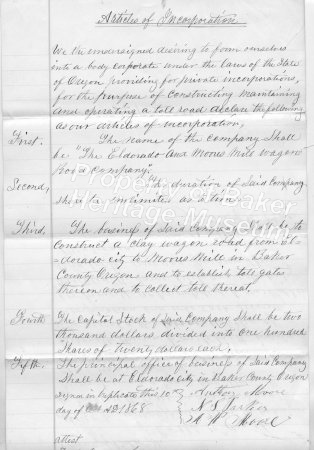 Articles of Incorporation
We the undersigned desiring to form ourselves
into a body corporate under the laws of the State
of Oregon providing for private incorporations,
for the purpose of Constructing Maintaining
and operating a toll road declare the following
as our articles of incorporation,
First. The name of the Company Shall
be "The Eldorado and Morris Mill wagon
Road Company."
Second, The duration of Said Company
shall be unlimited as to time.
Third, The business of said Company is to
Construct a clay wagon road from El=
=dorado city to Morris Mill in Baker
County Oregon and to establish toll gates
thereon and to collect toll thereat.
Fourth The Capital Stock of Said Company Shall be two
thousand dollars divided into One hundred
Shares of twenty dollars each.
Fifth. The principal office of business of Said Company
Shall be at Eldorado city in Baker County Oregon
Signed in duplicate this 10th
day of AD 1868
Moore
N. S.
Moore
attest
Property of Baker
Heritage Museum